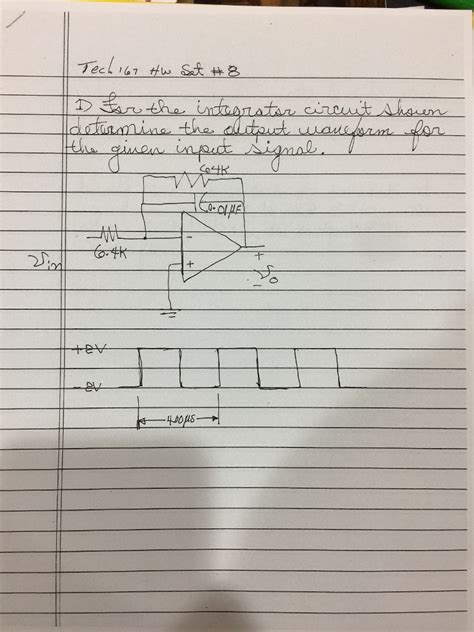 Tech 167 HW Set #8
1) For the integrator circuit shown
determine the output waveform for
the given input signal.
64K
0.01µF
6.4K
-
+
Vin
+
Vo
-
+8V
-8V
400µS